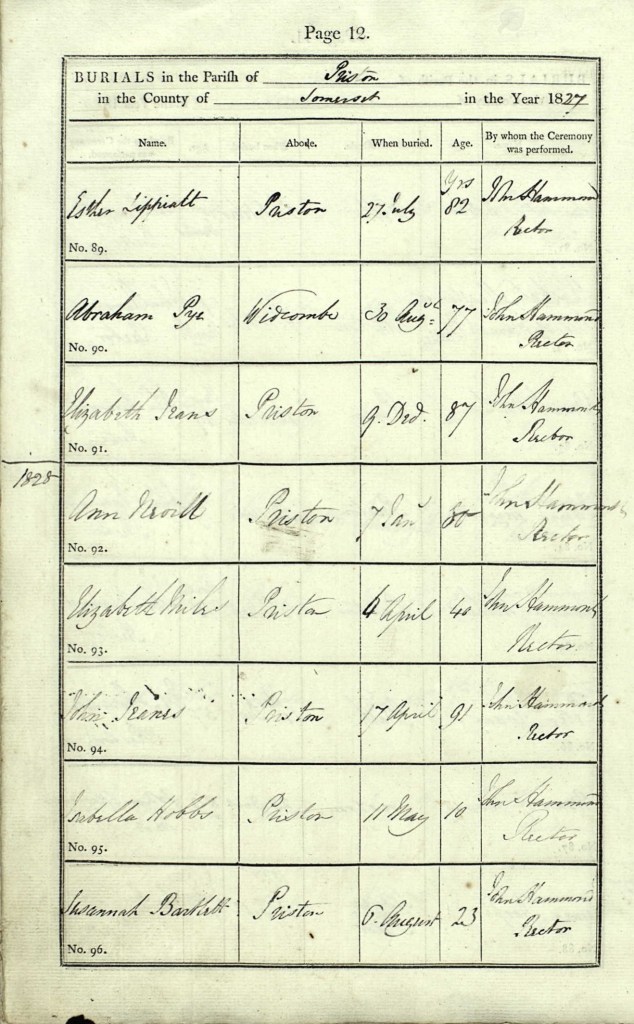 Page 12.
BURIALS in the Parish of Priston
in the County of Somerset in the Year 1827
Name. Abode. When buried. Age. By whom the Ceremony was performed.
Esther Lippiatt Priston 27 July Yrs 82 John Hammond Rector
No. 89.
Abraham Pye Widcombe 30 Augst 77 John Hammond Rector
No. 90.
Elizabeth Jeans Priston 9. Decr. 87 John Hammond Rector
No. 91.
1828
Ann Nevill Priston 7 Jany John Hammond Rector
No. 92.
Elizabeth Miles Priston April 40 John Hammond Rector
No. 93.
John Jeanes Priston 17 April 91 John Hammond Rector
No. 94.
Isabella Hobbs Priston 11 May 10 John Hammond Rector
No. 95.
Susannah Bartlett Priston 6. August 23 John Hammond Rector
No. 96.